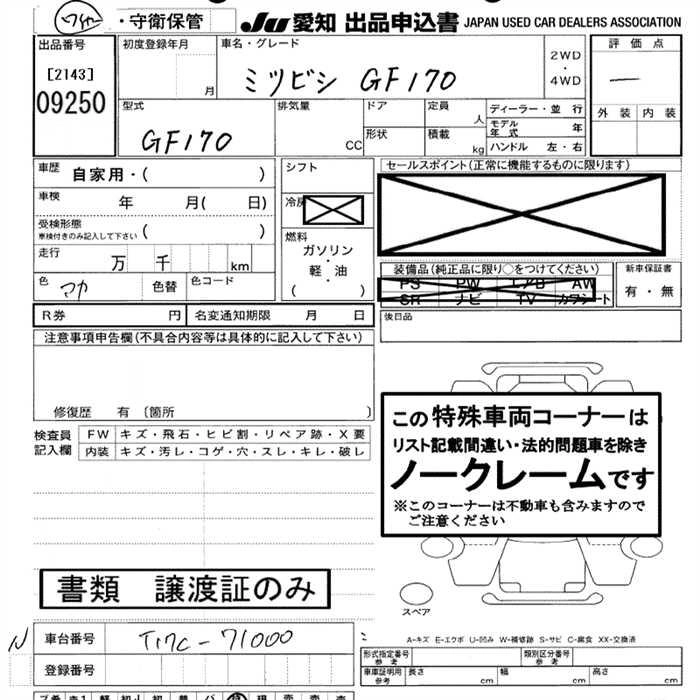 ・守衛保管
JU 愛知 出品申込書 JAPAN USED CAR DEALERS ASSOCIATION
出品番号
[2143]
09250
初度登録年月
月
車名・グレード
ミツビシ GF170
2WD
・
4WD
評価点
―
外装 内装
型式
GF170
排気量
CC
ドア
形状
定員
人
積載
kg
ディーラー・並行
モデル年式 年
ハンドル 左・右
車歴
自家用・( )
車検
年 月( 日)
受検形態
車検付きのみ記入して下さい ( )
走行
万 千 km
色
マカ
色替
色コード
シフト
冷房
燃料
ガソリン
・
軽・油
( )
セールスポイント(正常に機能するものに限ります)
装備品(純正品に限り○をつけてください)
PS PW エアB AW
SR ナビ TV カワシート
新車保証書
有・無
後日品
R券 円
名変通知期限 月 日
注意事項申告欄(不具合内容等は具体的に記入して下さい)
修復歴 有 〔箇所 〕
検査員
記入欄
FW キズ・飛石・ヒビ割・リペア跡・X要
内装 キズ・汚レ・コゲ・穴・スレ・キレ・破レ
この特殊車両コーナーは
リスト記載間違い・法的問題車を除き
ノークレームです
※このコーナーは不動車も含みますので
ご注意ください
書類 譲渡証のみ
スペア
N
車台番号
T17C-71000
登録番号
A-キズ E-エクボ U-凹み W-補修跡 S-サビ C-腐食 XX-交換済
形式指定番号
参考
類別区分番号
参考
車庫証明用
参考
長さ cm
幅 cm
高さ cm